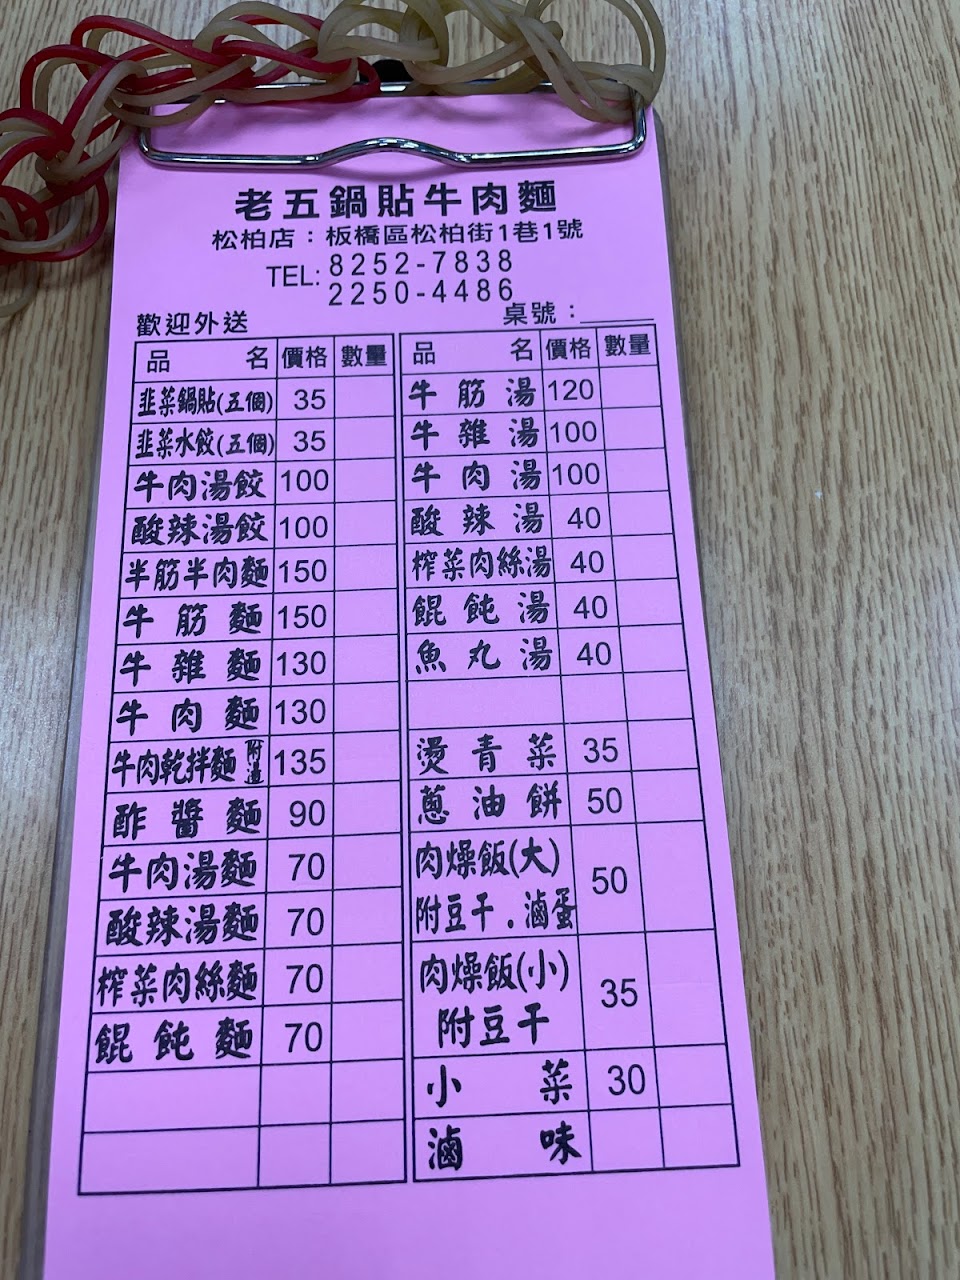 老五鍋貼牛肉麵
松柏店：板橋區松柏街1巷1號
TEL: 8252-7838
2250-4486
歡迎外送
桌號：
品名 價格 數量
韭菜鍋貼(五個) 35
韭菜水餃(五個) 35
牛肉湯餃 100
酸辣湯餃 100
半筋半肉麵 150
牛筋麵 150
牛雜麵 130
牛肉麵 130
牛肉乾拌麵 附湯 135
酢醬麵 90
牛肉湯麵 70
酸辣湯麵 70
榨菜肉絲麵 70
餛飩麵 70
品名 價格 數量
牛筋湯 120
牛雜湯 100
牛肉湯 100
酸辣湯 40
榨菜肉絲湯 40
餛飩湯 40
魚丸湯 40
燙青菜 35
蔥油餅 50
肉燥飯(大) 50
附豆干.滷蛋
肉燥飯(小) 35
附豆干
小菜 30
滷味